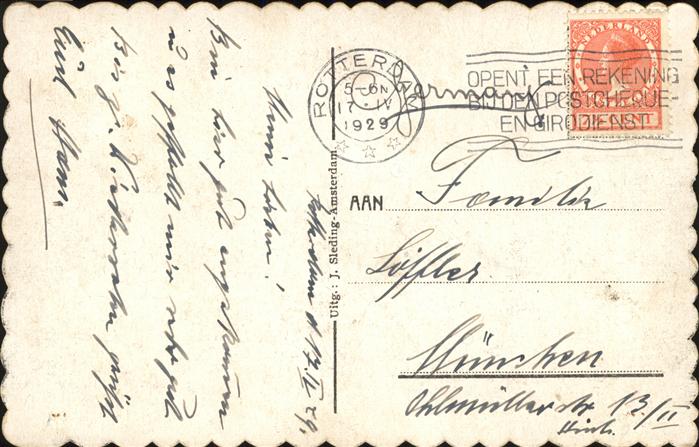 Rotterdam d 17.IV.29.
Meine Lieben!
Bin hier gut angekommen
u. es gefällt mir sehr gut
Euch Hans.
Uitg.: J. Sleding-Amsterdam.
ROTTERDAM
5-6N
17 IV
1929
OPENT EEN REKENING
BIJ DEN POSTCHEQUE-
EN GIRODIENST
NEDERLAND
CENT
Germany
AAN Familie
Löffler
München
Ohlmüllerstr 13/II